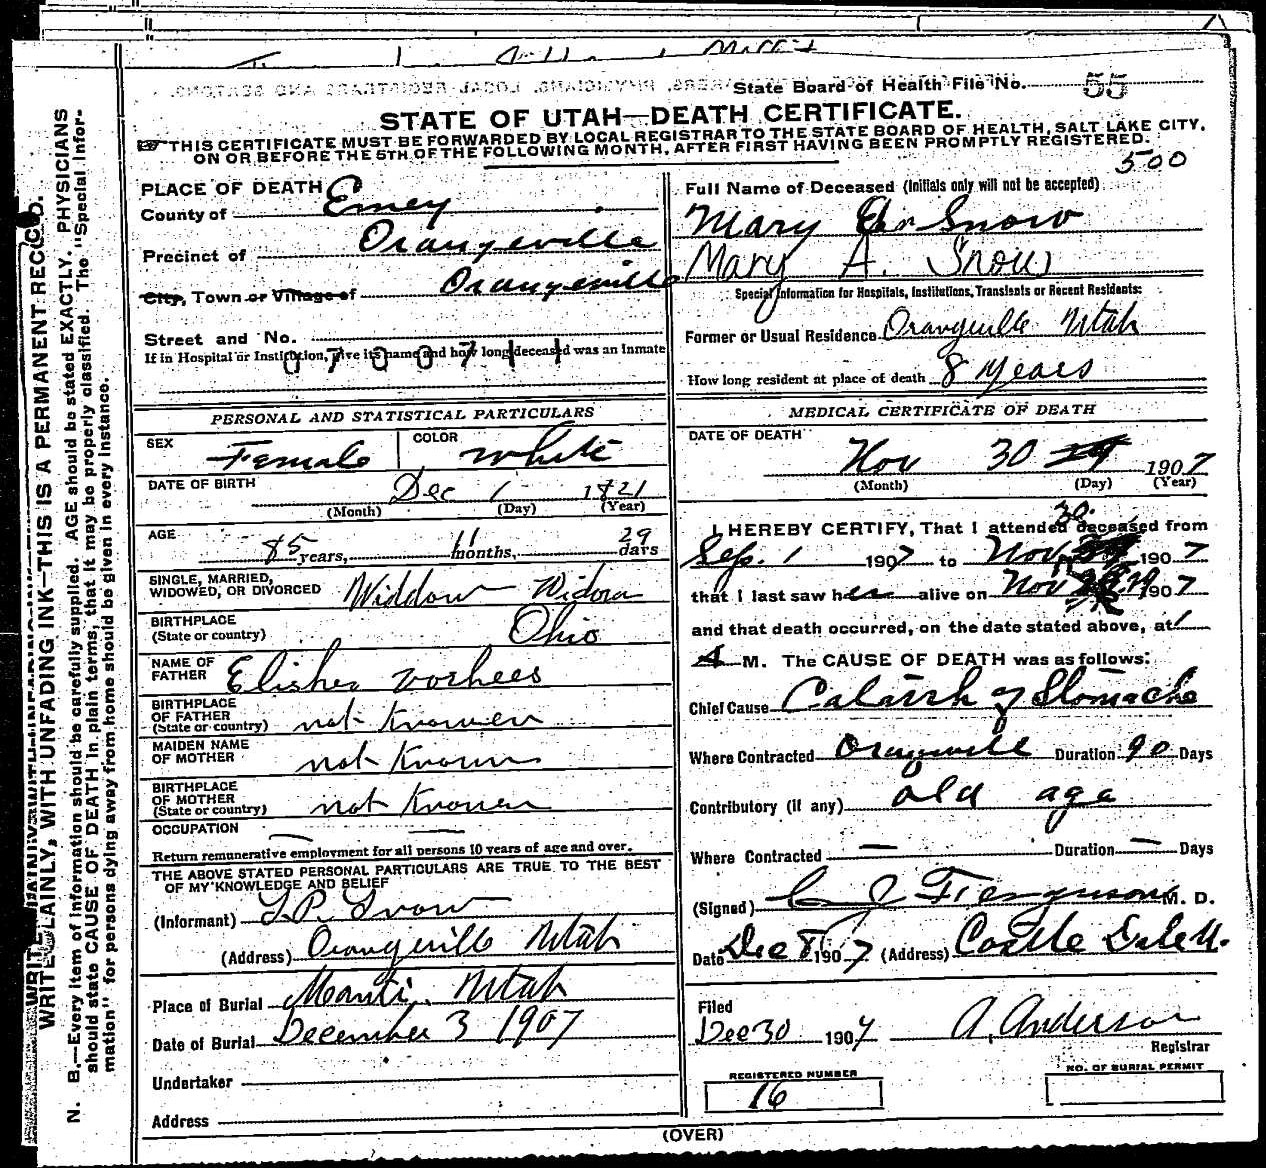 State Board of Health File No. 55
STATE OF UTAH—DEATH CERTIFICATE.
THIS CERTIFICATE MUST BE FORWARDED BY LOCAL REGISTRAR TO THE STATE BOARD OF HEALTH, SALT LAKE CITY,
ON OR BEFORE THE 5TH OF THE FOLLOWING MONTH, AFTER FIRST HAVING BEEN PROMPTLY REGISTERED.
500
PLACE OF DEATH
County of Emey
Precinct of Orangeville
City, Town or Village of Orangeville
Street and No.
If in Hospital or Institution, give its name and how long deceased was an Inmate
0700711
Full Name of Deceased (Initials only will not be accepted)
Mary Snow
Mary A. Snow
Special Information for Hospitals, Institutions, Transients or Recent Residents:
Former or Usual Residence Orangville Utah
How long resident at place of death 8 years
PERSONAL AND STATISTICAL PARTICULARS
SEX Female COLOR White
DATE OF BIRTH Dec 1 1821
(Month) (Day) (Year)
AGE 85 years, 11 months, 29 days
SINGLE, MARRIED,
WIDOWED, OR DIVORCED Widdow Widow
BIRTHPLACE
(State or country) Ohio
NAME OF
FATHER Elisher Vorhees
BIRTHPLACE
OF FATHER
(State or country) not Knowen
MAIDEN NAME
OF MOTHER not Known
BIRTHPLACE
OF MOTHER
(State or country) not Knowen
OCCUPATION —
Return remunerative employment for all persons 10 years of age and over.
THE ABOVE STATED PERSONAL PARTICULARS ARE TRUE TO THE BEST
OF MY KNOWLEDGE AND BELIEF
(Informant) Snow
(Address) Orangeville Utah
Place of Burial Manti, Utah
Date of Burial December 3 1907
Undertaker
Address
MEDICAL CERTIFICATE OF DEATH
DATE OF DEATH
Nov 30 29 1907
(Month) (Day) (Year)
I HEREBY CERTIFY, That I attended deceased from
Sep. 1 1907 to Nov 30 1907
that I last saw her alive on Nov 1907
and that death occurred, on the date stated above, at 1
A M. The CAUSE OF DEATH was as follows:
Chief Cause Catarrh of Stomache
Where Contracted Orangeville Duration 90 Days
Contributory (if any) old age
Where Contracted — Duration — Days
(Signed) C J Fergusons M. D.
Date Dec 8 1907 (Address) Castle Dale U.
Filed
Dec 30 1907 A. Anderson
Registrar
REGISTERED NUMBER
16
NO. OF BURIAL PERMIT
(OVER)
WRITE PLAINLY, WITH UNFADING INK—THIS IS A PERMANENT RECORD.
N. B.—Every item of information should be carefully supplied. AGE should be stated EXACTLY. PHYSICIANS
should state CAUSE OF DEATH in plain terms, that it may be properly classified. The "Special Infor-
mation" for persons dying away from home should be given in every instance.